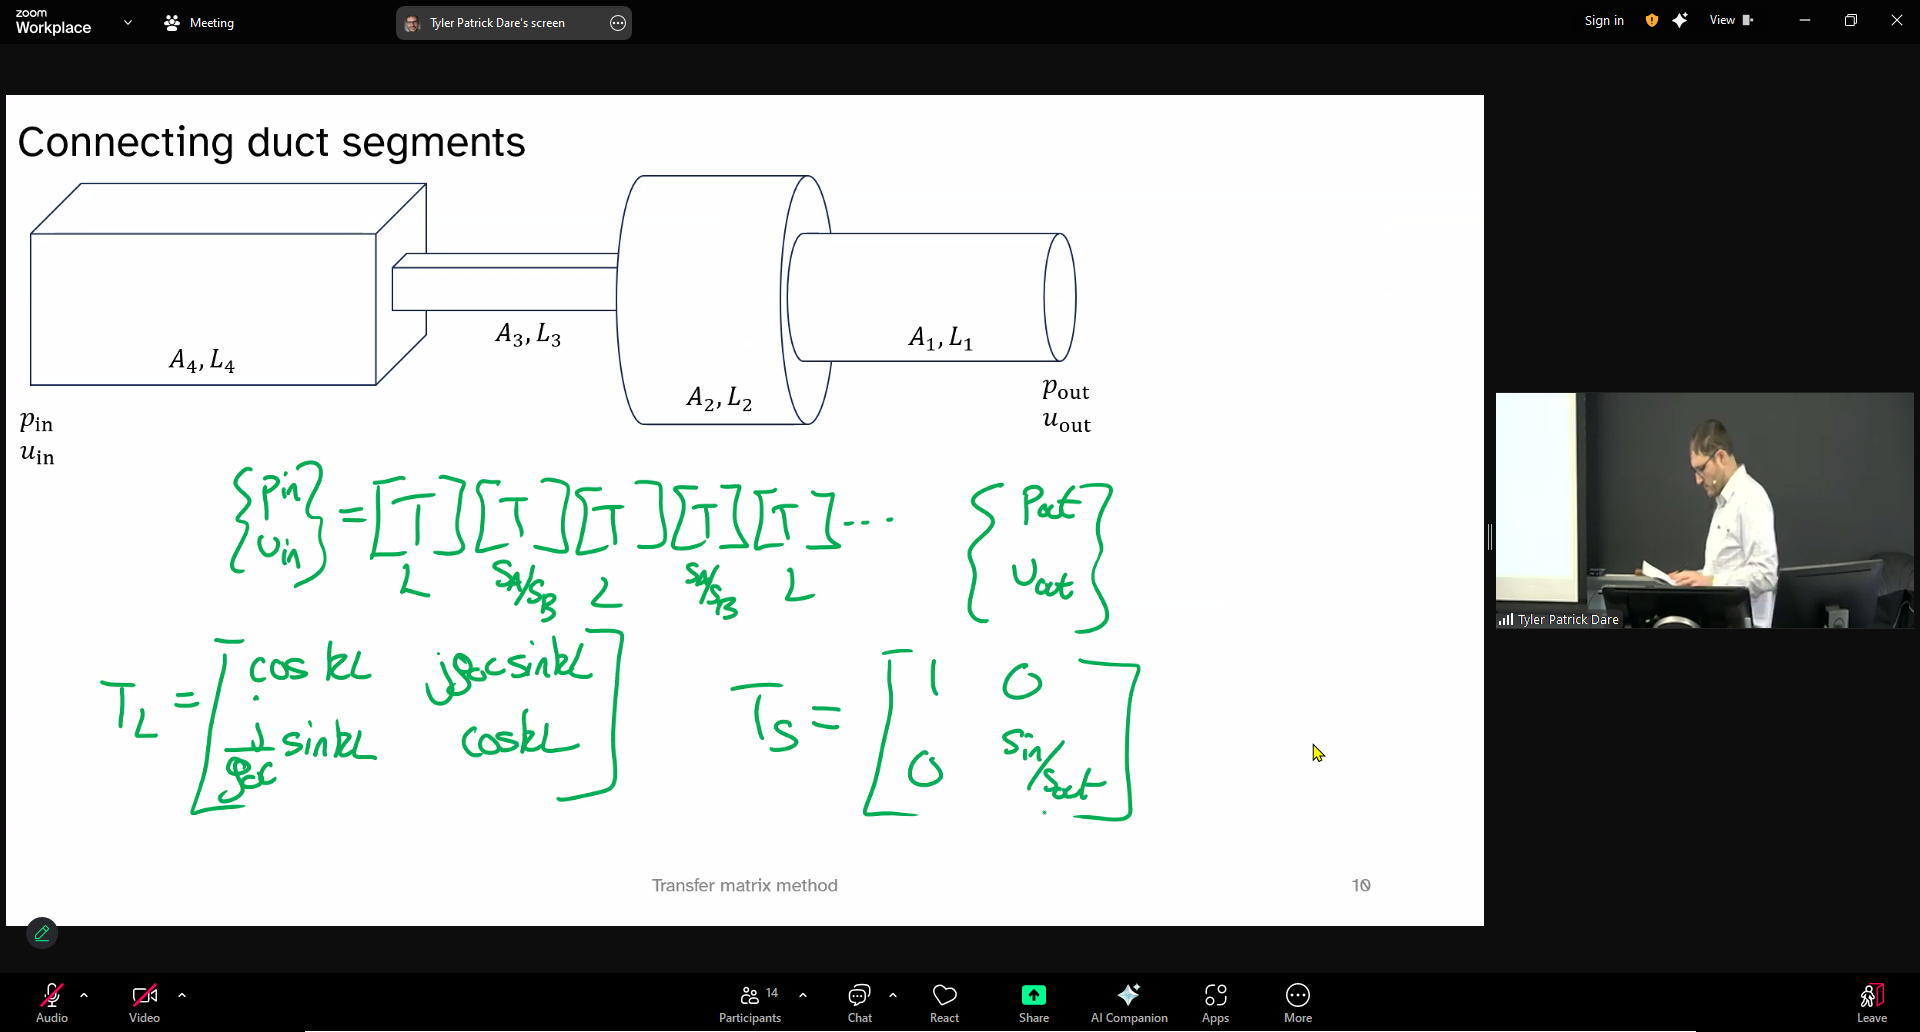 zoom
Workplace
Meeting
Tyler Patrick Dare's screen
Sign in
View
Connecting duct segments
A₄, L₄
A₃, L₃
A₂, L₂
A₁, L₁
p_in
u_in
p_out
u_out
{Pin Uin} = [T] [T] [T] [T] [T] ... {Pout Uout}
L SA/SB L SA/SB L
T_L = [cos kL jρ₀c sin kL
j/ρ₀c sin kL cos kL]
T_S = [1 0
0 Sin/Sout]
Transfer matrix method
10
Tyler Patrick Dare
Audio
Video
Participants
14
Chat
React
Share
AI Companion
Apps
More
Leave